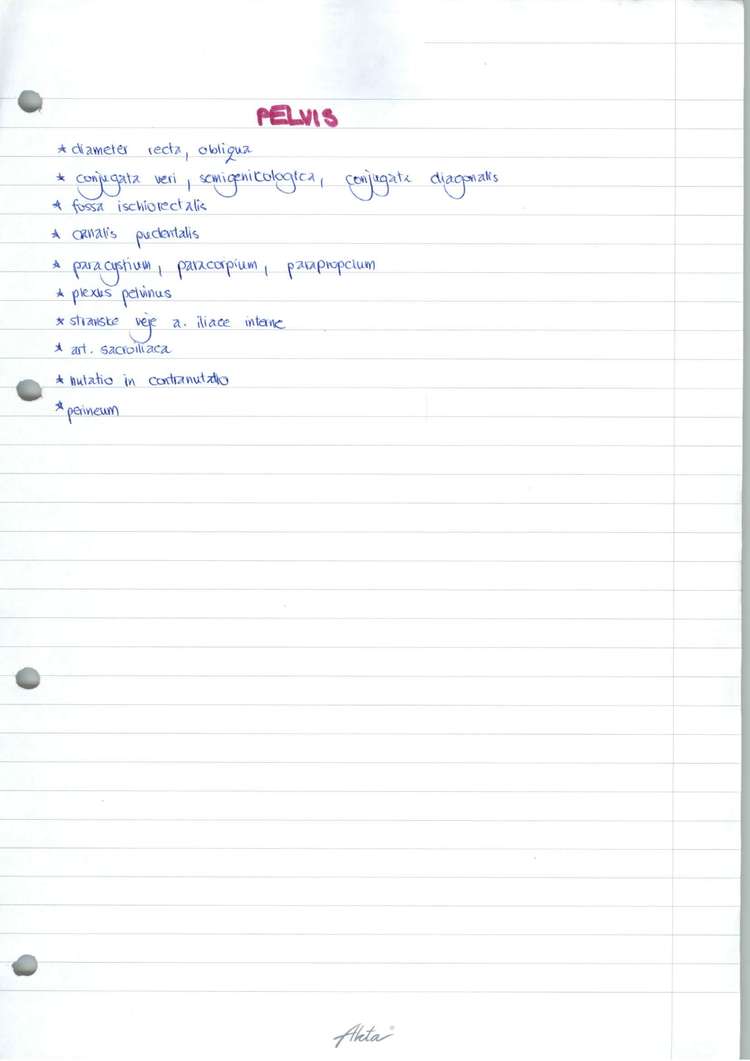 PELVIS
* diameter recta, obliqua
* conjugata veri, semigenikologica, conjugata diagonalis
* fossa ischiorectalis
* canalis pudentalis
* paracystium, paracorpium, parapropcium
* plexus pelvinus
* stranske veje a. iliace interne
* art. sacroiliaca
* nutatio in contranutatio
* perineum
Akta